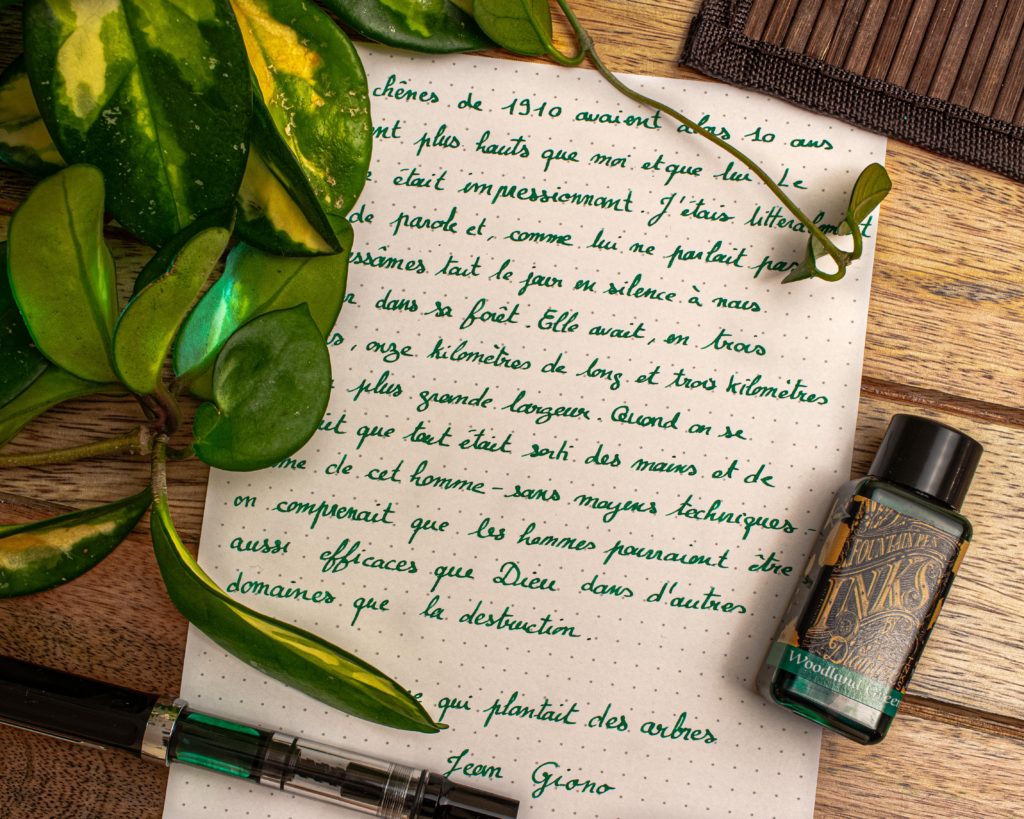 chênes de 1910 avaient alors 10 ans
plus hauts que moi et que lui. Le
était impressionnant. J'étais littéralement
de parole et, comme lui ne parlait pas
tout le jour en silence à nous
dans sa forêt. Elle avait, en trois
, onze kilomètres de long et trois kilomètres
plus grande largeur. Quand on se
que tout était sorti des mains et de
de cet homme - sans moyens techniques -
on comprenait que les hommes pourraient être
aussi efficaces que Dieu dans d'autres
domaines que la destruction.
qui plantait des arbres
Jean Giono
FOUNTAIN PEN
INKS
Woodland Green